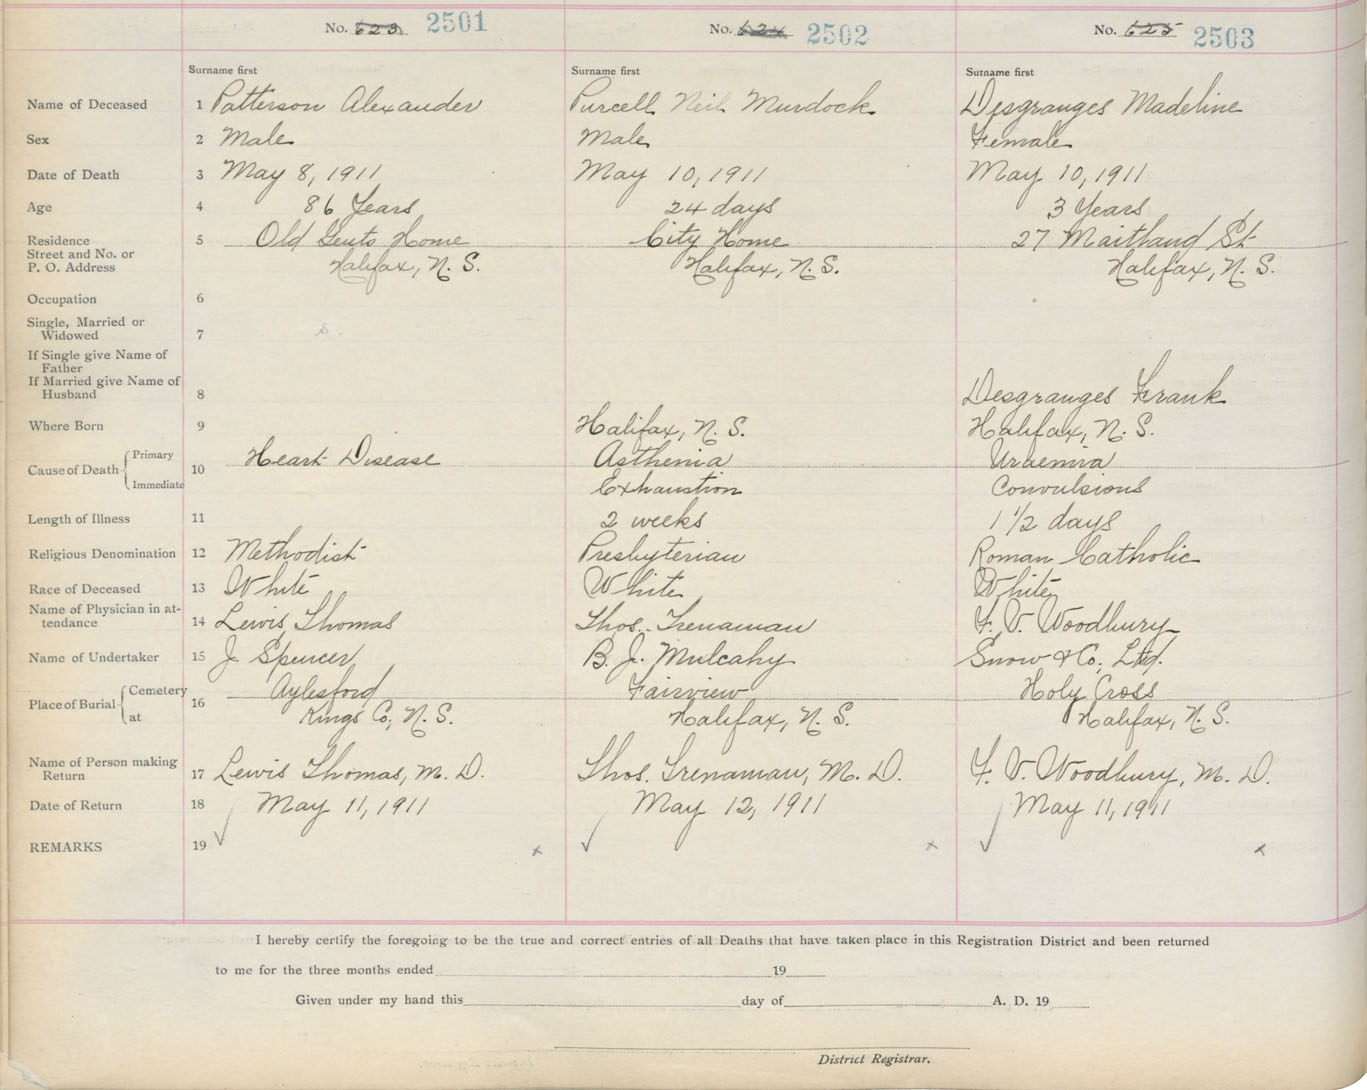 No. 623 2501 No. 624 2502 No. 625 2503
Surname first Surname first Surname first
Name of Deceased 1 Patterson Alexander Purcell Neil Murdock Desgranges Madeline
Sex 2 Male Male Female
Date of Death 3 May 8, 1911 May 10, 1911 May 10, 1911
Age 4 86 Years 24 days 3 Years
Residence 5 Old Gents Home City Home 27 Maitland St.
Street and No. or
P. O. Address Halifax, N. S. Halifax, N. S. Halifax, N. S.
Occupation 6
Single, Married or
Widowed 7 s.
If Single give Name of
Father
If Married give Name of
Husband 8 Desgranges Frank
Where Born 9 Halifax, N. S. Halifax, N. S.
Cause of Death Primary 10 Heart Disease Asthenia Uraemia
Immediate Exhaustion Convulsions
Length of Illness 11 2 weeks 1 1/2 days
Religious Denomination 12 Methodist Presbyterian Roman Catholic
Race of Deceased 13 White White White
Name of Physician in at-
tendance 14 Lewis Thomas Thos. Trenaman F. V. Woodbury
Name of Undertaker 15 J Spencer B. J. Mulcahy Snow & Co. Ltd.
Place of Burial Cemetery 16 Aylesford Fairview Holy Cross
at Kings Co, N. S. Halifax, N. S. Halifax, N. S.
Name of Person making
Return 17 Lewis Thomas, M. D. Thos. Trenaman, M. D. F. V. Woodbury, M. D.
Date of Return 18 May 11, 1911 May 12, 1911 May 11, 1911
REMARKS 19 x x x
I hereby certify the foregoing to be the true and correct entries of all Deaths that have taken place in this Registration District and been returned
to me for the three months ended 19
Given under my hand this day of A. D. 19
District Registrar.